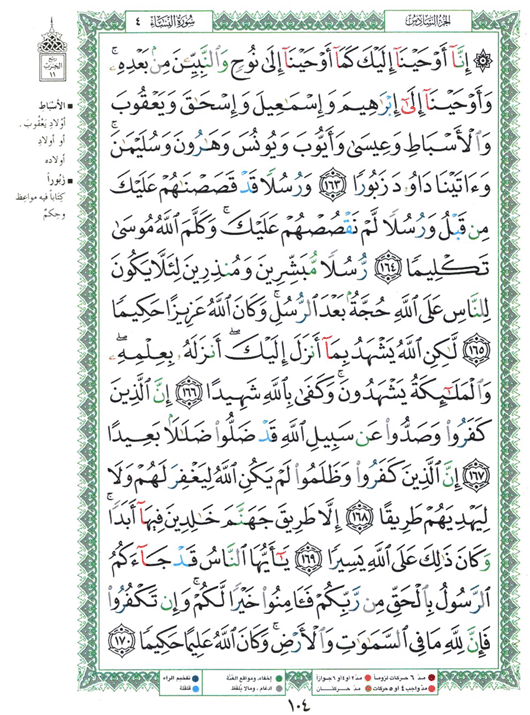 الجزء السادس
سورة النساء ٤
۞ إِنَّآ أَوْحَيْنَآ إِلَيْكَ كَمَآ أَوْحَيْنَآ إِلَىٰ نُوحٍ وَٱلنَّبِيِّـۧنَ مِنۢ بَعْدِهِۦ ۚ
وَأَوْحَيْنَآ إِلَىٰٓ إِبْرَٰهِيمَ وَإِسْمَـٰعِيلَ وَإِسْحَـٰقَ وَيَعْقُوبَ
وَٱلْأَسْبَاطِ وَعِيسَىٰ وَأَيُّوبَ وَيُونُسَ وَهَـٰرُونَ وَسُلَيْمَـٰنَ ۚ
وَءَاتَيْنَا دَاوُۥدَ زَبُورًا ١٦٣ وَرُسُلًا قَدْ قَصَصْنَـٰهُمْ عَلَيْكَ
مِن قَبْلُ وَرُسُلًا لَّمْ نَقْصُصْهُمْ عَلَيْكَ ۚ وَكَلَّمَ ٱللَّهُ مُوسَىٰ
تَكْلِيمًا ١٦٤ رُّسُلًا مُّبَشِّرِينَ وَمُنذِرِينَ لِئَلَّا يَكُونَ
لِلنَّاسِ عَلَى ٱللَّهِ حُجَّةٌۢ بَعْدَ ٱلرُّسُلِ ۚ وَكَانَ ٱللَّهُ عَزِيزًا حَكِيمًا
١٦٥ لَّـٰكِنِ ٱللَّهُ يَشْهَدُ بِمَآ أَنزَلَ إِلَيْكَ ۖ أَنزَلَهُۥ بِعِلْمِهِۦ ۖ
وَٱلْمَلَـٰٓئِكَةُ يَشْهَدُونَ ۚ وَكَفَىٰ بِٱللَّهِ شَهِيدًا ١٦٦ إِنَّ ٱلَّذِينَ
كَفَرُوا۟ وَصَدُّوا۟ عَن سَبِيلِ ٱللَّهِ قَدْ ضَلُّوا۟ ضَلَـٰلًۢا بَعِيدًا
١٦٧ إِنَّ ٱلَّذِينَ كَفَرُوا۟ وَظَلَمُوا۟ لَمْ يَكُنِ ٱللَّهُ لِيَغْفِرَ لَهُمْ وَلَا
لِيَهْدِيَهُمْ طَرِيقًا ١٦٨ إِلَّا طَرِيقَ جَهَنَّمَ خَـٰلِدِينَ فِيهَآ أَبَدًا ۚ
وَكَانَ ذَٰلِكَ عَلَى ٱللَّهِ يَسِيرًا ١٦٩ يَـٰٓأَيُّهَا ٱلنَّاسُ قَدْ جَآءَكُمُ
ٱلرَّسُولُ بِٱلْحَقِّ مِن رَّبِّكُمْ فَـَٔامِنُوا۟ خَيْرًا لَّكُمْ ۚ وَإِن تَكْفُرُوا۟
فَإِنَّ لِلَّهِ مَا فِى ٱلسَّمَـٰوَٰتِ وَٱلْأَرْضِ ۚ وَكَانَ ٱللَّهُ عَلِيمًا حَكِيمًا ١٧٠
ربع
الحزب
١١
■ الأسباط
أولاد يعقوب.
أو أولاد
أولاده
■ زبورا
كتابا فيه مواعظ
وحكم
مدّ ٦ حركات لزوماً مدّ ٢ أو ٤ أو ٦ جوازاً إخفاء، ومواقع الغنّة تفخيم الراء
مدّ واجب ٤ أو ٥ حركات مدّ حركتان ادغام، ومالا يُلفظ قلقلة
١٠٤